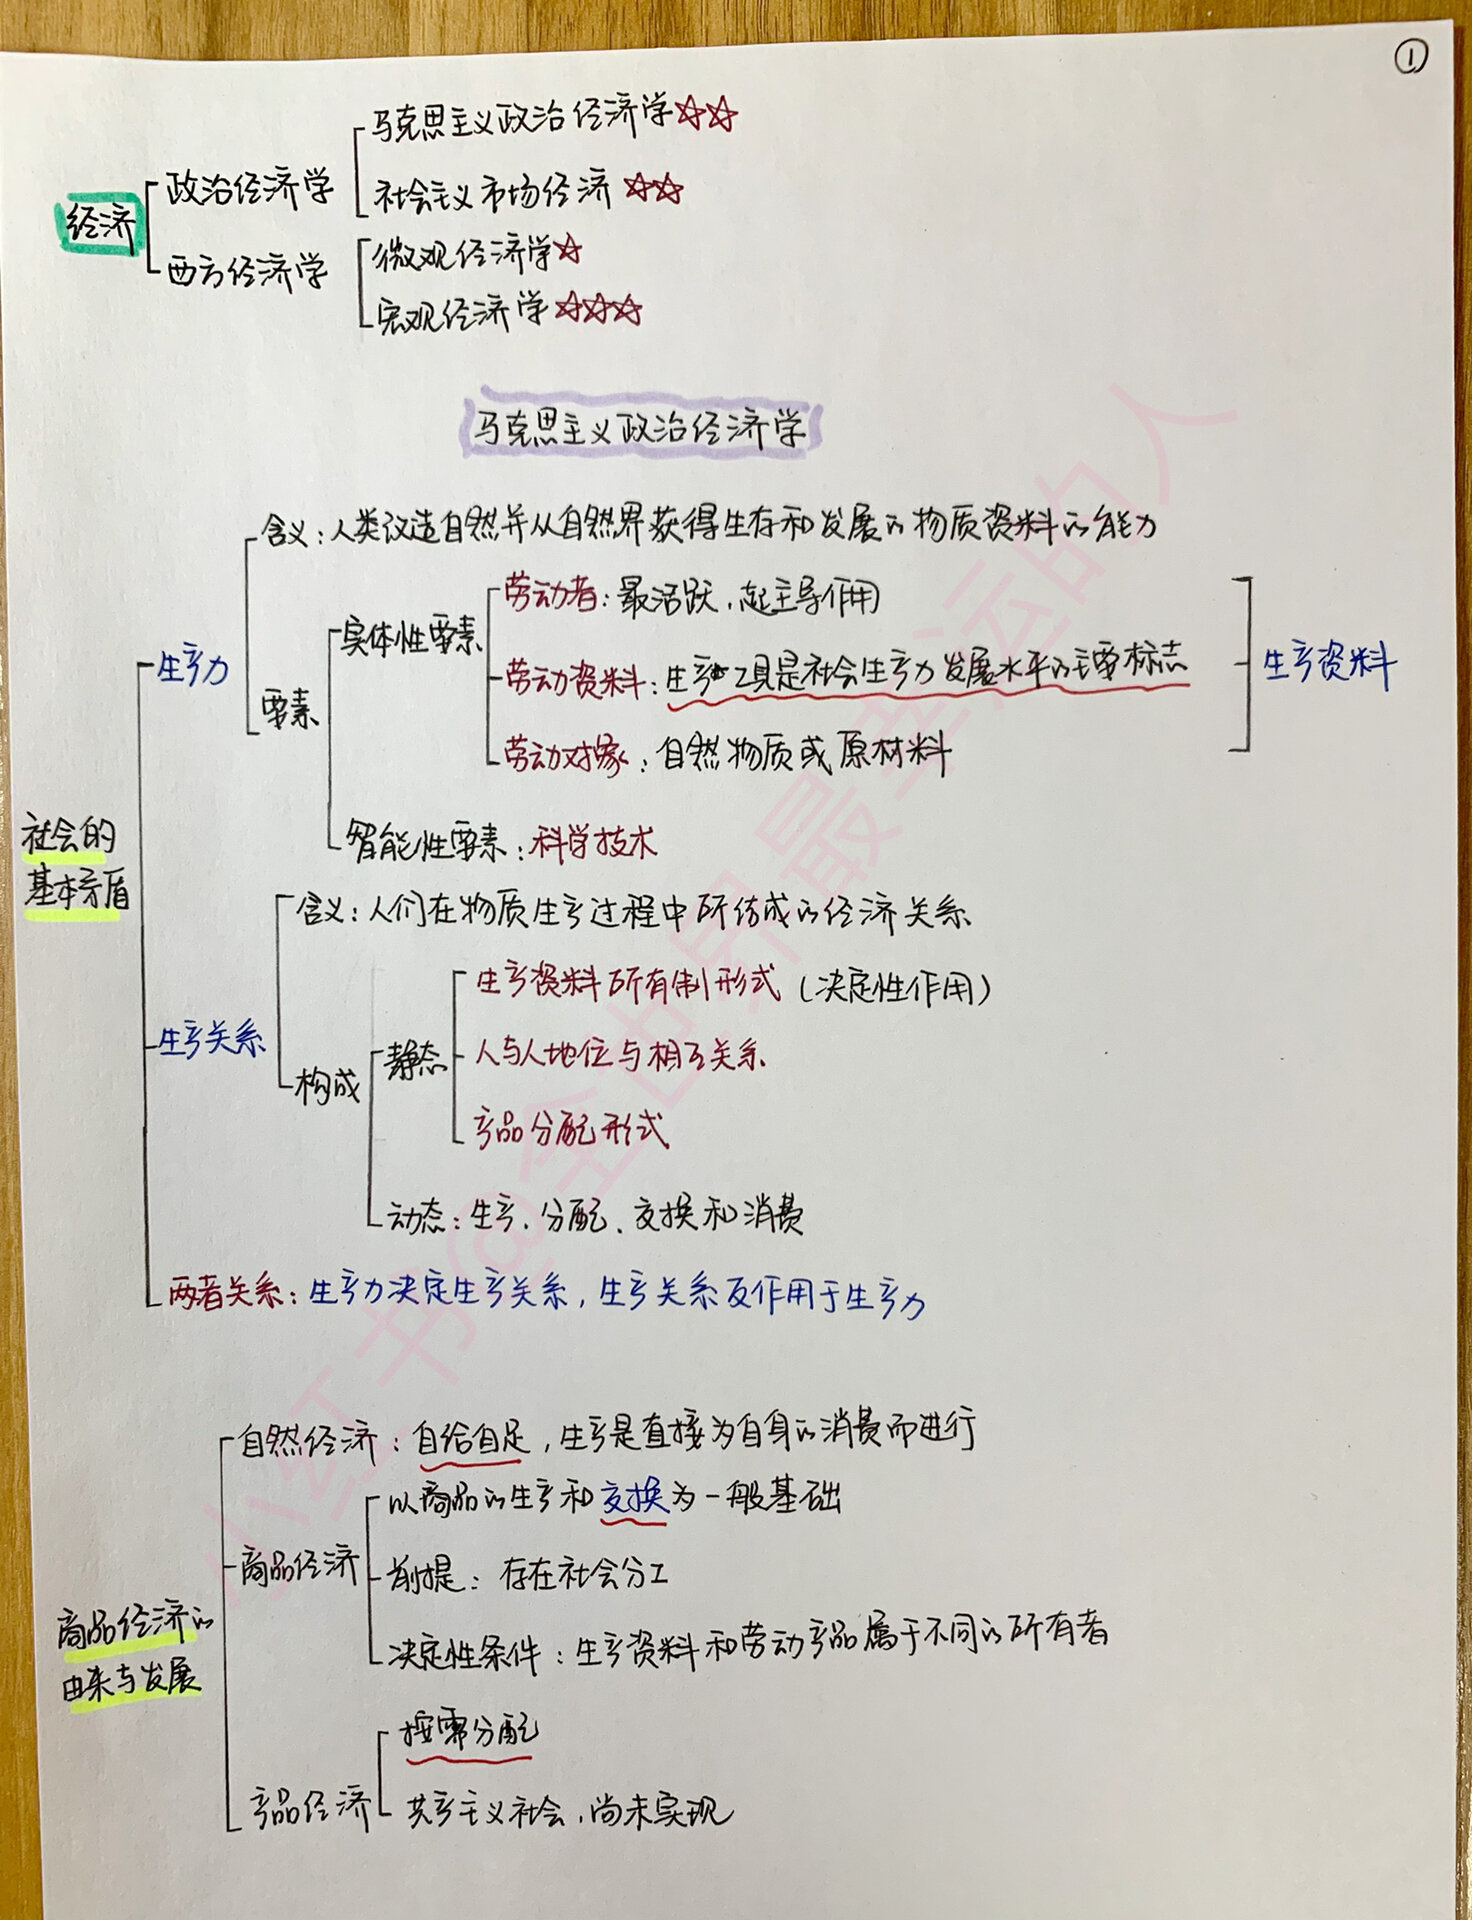 ①
经济
政治经济学
马克思主义政治经济学☆☆
社会主义市场经济☆☆
西方经济学
微观经济学☆
宏观经济学☆☆☆
马克思主义政治经济学
社会的
基本矛盾
生产力
含义：人类改造自然并从自然界获得生存和发展的物质资料的能力
要素
实体性要素
劳动者：最活跃，起主导作用
劳动资料：生产工具是社会生产力发展水平的主要标志
劳动对象：自然物质或原材料
生产资料
智能性要素：科学技术
生产关系
含义：人们在物质生产过程中所结成的经济关系
构成
静态
生产资料所有制形式（决定性作用）
人与人地位与相互关系
产品分配形式
动态：生产、分配、交换和消费
两者关系：生产力决定生产关系，生产关系反作用于生产力
商品经济的
由来与发展
自然经济：自给自足，生产是直接为自身的消费而进行
商品经济
以商品的生产和交换为一般基础
前提：存在社会分工
决定性条件：生产资料和劳动产品属于不同的所有者
产品经济
按需分配
共产主义社会，尚未实现
小红书@全世界最幸运的人